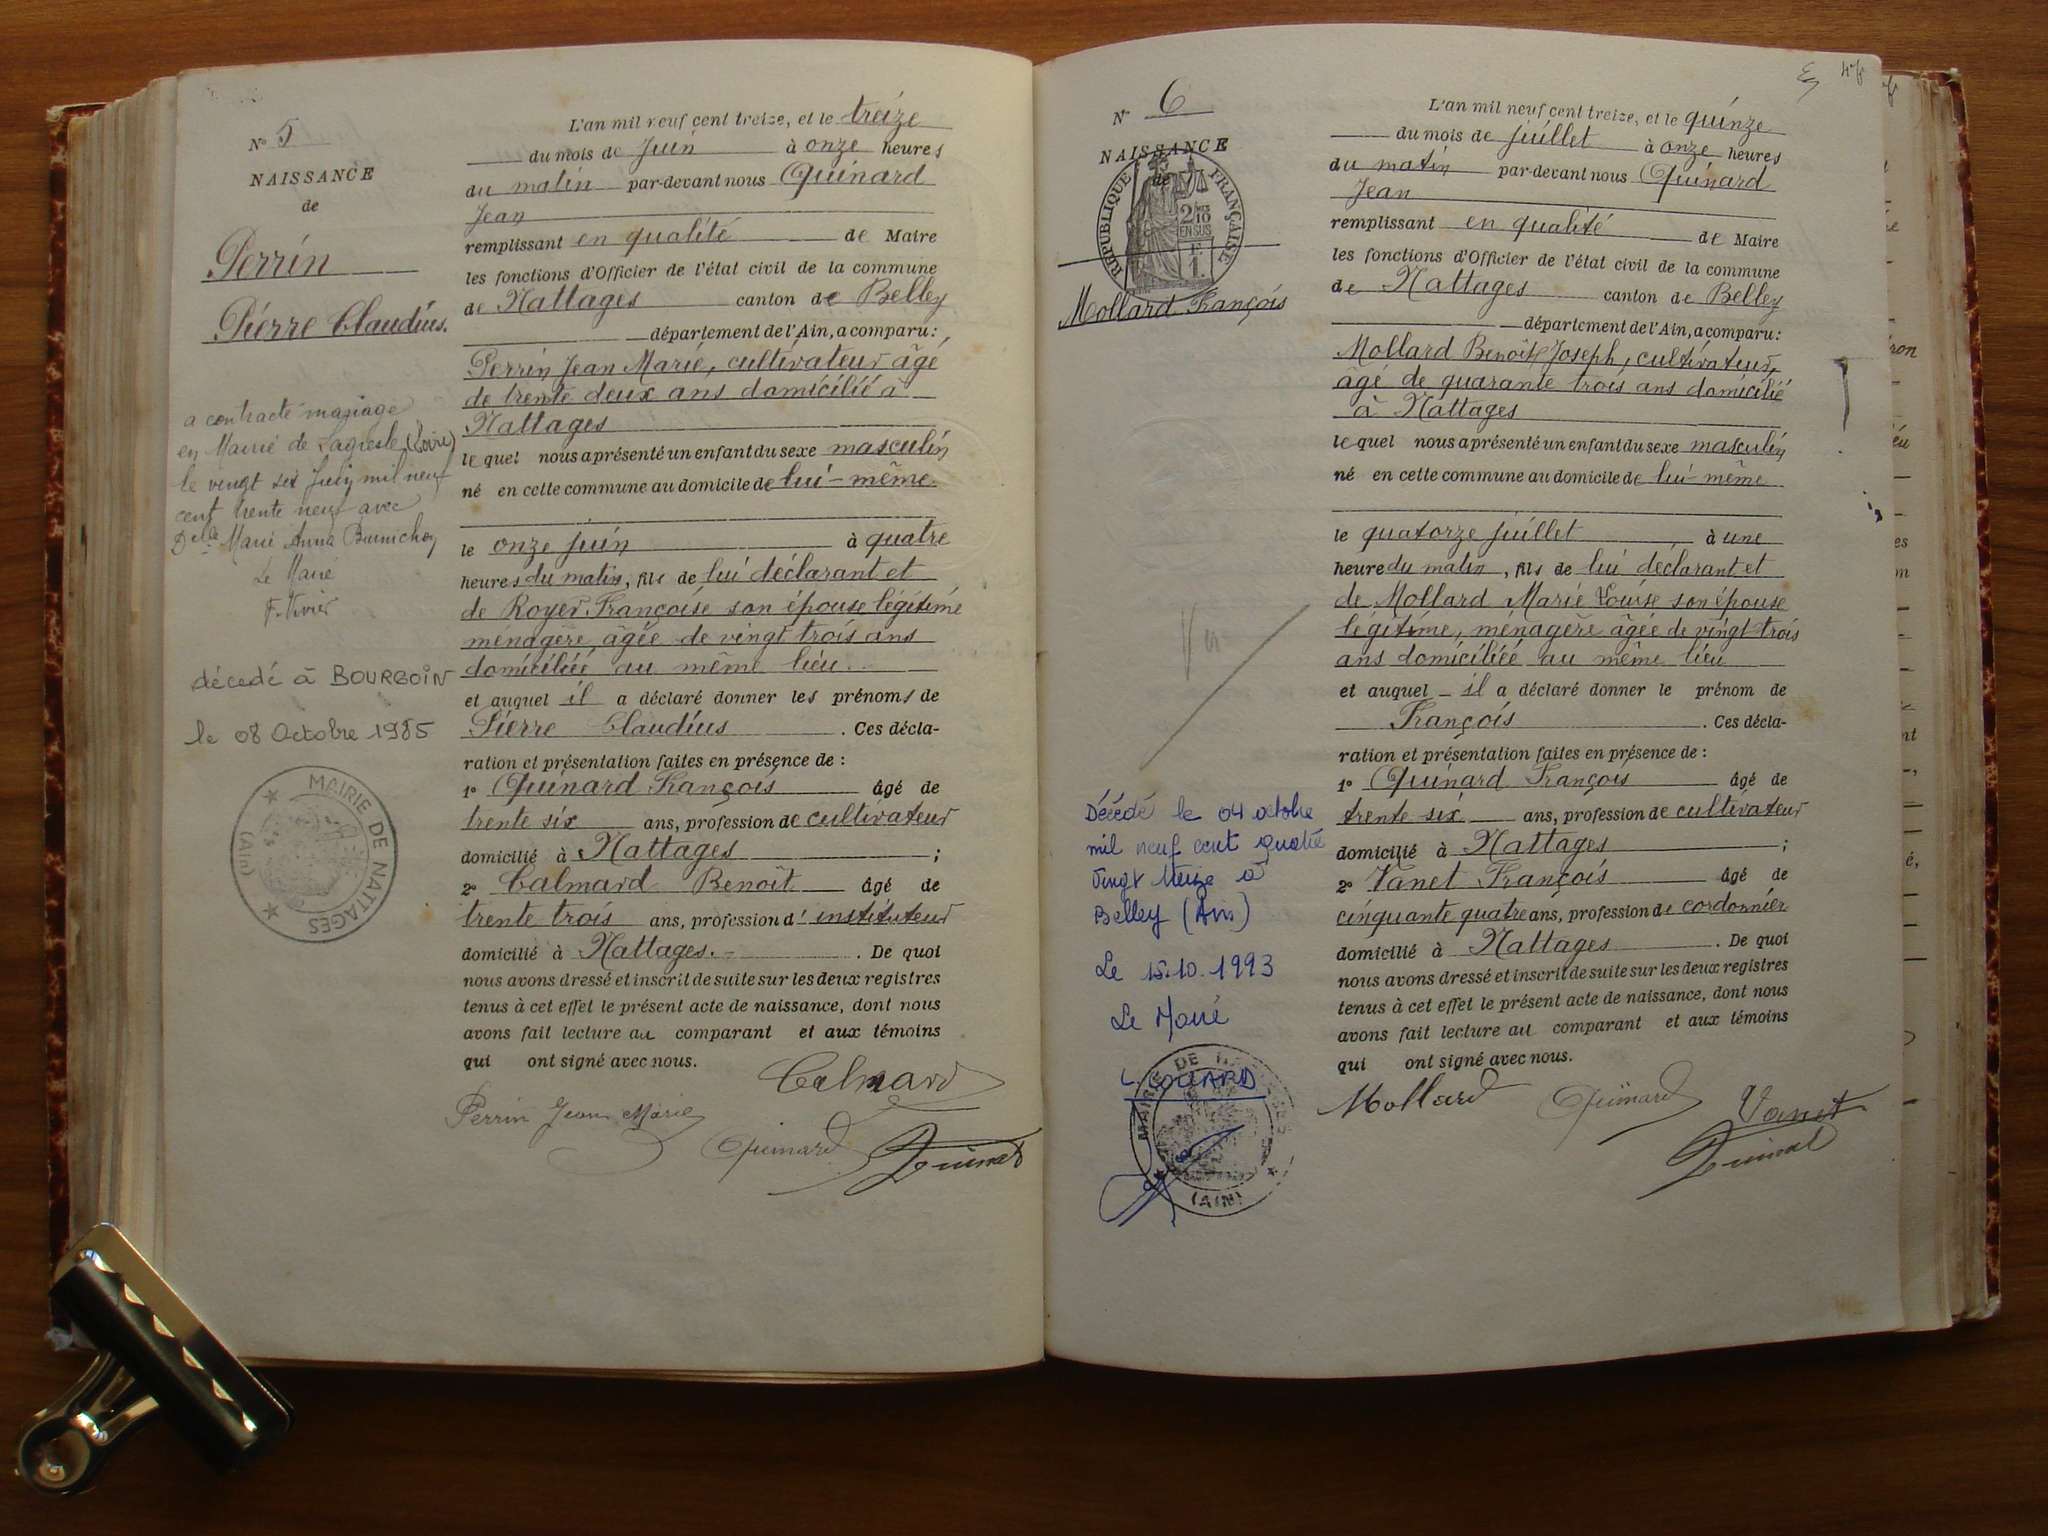 N° 5
NAISSANCE
de
Perrin
Pierre Claudius.
a contracté mariage
en Mairie de Lagresle (Loire)
le vingt six Juin mil neuf
cent trente neuf avec
Delle Marie Anna Burnichon
Le Maire
F. Vivier
décédé à BOURGOIN
le 08 Octobre 1985
MAIRIE DE NATTAGES
(Ain)
L'an mil neuf cent treize, et le treize
du mois de Juin à onze heures
du matin par-devant nous Quinard
Jean
remplissant en qualité de Maire
les fonctions d'Officier de l'état civil de la commune
de Nattages canton de Belley
département de l'Ain, a comparu:
Perrin Jean Marie, cultivateur âgé
de trente deux ans domicilié à
Nattages
le quel nous a présenté un enfant du sexe masculin
né en cette commune au domicile de lui-même
le onze juin à quatre
heures du matin, fils de lui déclarant et
de Royer Françoise son épouse légitime
ménagère, âgée de vingt trois ans
domiciliée au même lieu.
et auquel il a déclaré donner les prénoms de
Pierre Claudius. Ces décla-
ration et présentation faites en présence de :
1° Quinard François âgé de
trente six ans, profession de cultivateur
domicilié à Nattages ;
2° Calmard Benoît âgé de
trente trois ans, profession d'instituteur
domicilié à Nattages. - . De quoi
nous avons dressé et inscrit de suite sur les deux registres
tenus à cet effet le présent acte de naissance, dont nous
avons fait lecture au comparant et aux témoins
qui ont signé avec nous.
Calmard
Perrin Jean Marie
Quinard
Quinard
N° 6
NAISSANCE
de
RÉPUBLIQUE FRANÇAISE
2/10
EN SUS
Mollard François
Décédé le 04 octobre
mil neuf cent quatre
vingt treize à
Belley (Ain)
Le 15.10.1993
Le Maire
MAIRIE DE
(AIN)
L'an mil neuf cent treize, et le quinze
du mois de juillet à onze heures
du matin par-devant nous Quinard
Jean
remplissant en qualité de Maire
les fonctions d'Officier de l'état civil de la commune
de Nattages canton de Belley
département de l'Ain, a comparu:
Mollard Benoît Joseph, cultivateur,
âgé de quarante trois ans domicilié
à Nattages
le quel nous a présenté un enfant du sexe masculin
né en cette commune au domicile de lui-même
le quatorze juillet à une
heure du matin, fils de lui déclarant et
de Mollard Marie Louise son épouse
légitime, ménagère âgée de vingt trois
ans domiciliée au même lieu
et auquel - il a déclaré donner le prénom de
François. Ces décla-
ration et présentation faites en présence de :
1° Quinard François âgé de
trente six ans, profession de cultivateur
domicilié à Nattages ;
2° Vanet François âgé de
cinquante quatre ans, profession de cordonnier
domicilié à Nattages. De quoi
nous avons dressé et inscrit de suite sur les deux registres
tenus à cet effet le présent acte de naissance, dont nous
avons fait lecture au comparant et aux témoins
qui ont signé avec nous.
Mollard Quinard Vanet
Quinard